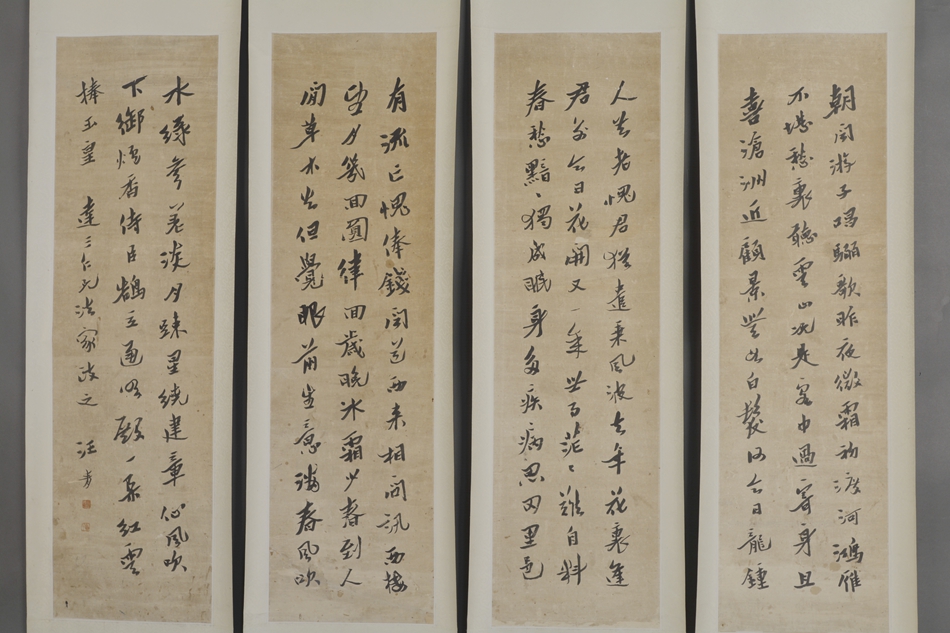 朝聞游子唱驪歌昨夜微霜初渡河鴻雁
不堪愁裏聽雲山況是客中過寄身且
喜滄洲近顧景無如白髮何今日龍鍾
人共老愧君猶遣慎風波去年花裏逢
君別今日花開又一年世事茫〻難自料
春愁黯〻獨成眠身多疾病思田里邑
有流亡愧俸錢聞道西來相問訊西樓
望月幾回圓律回歲晚冰霜少春到人
間草木知但覺眼前生意滿春風吹
水綠參差淡月疎星繞建章仙風吹
下御爐香侍臣鵠立通明殿一朵紅雲
捧玉皇 達三仁兄法家政之 汪